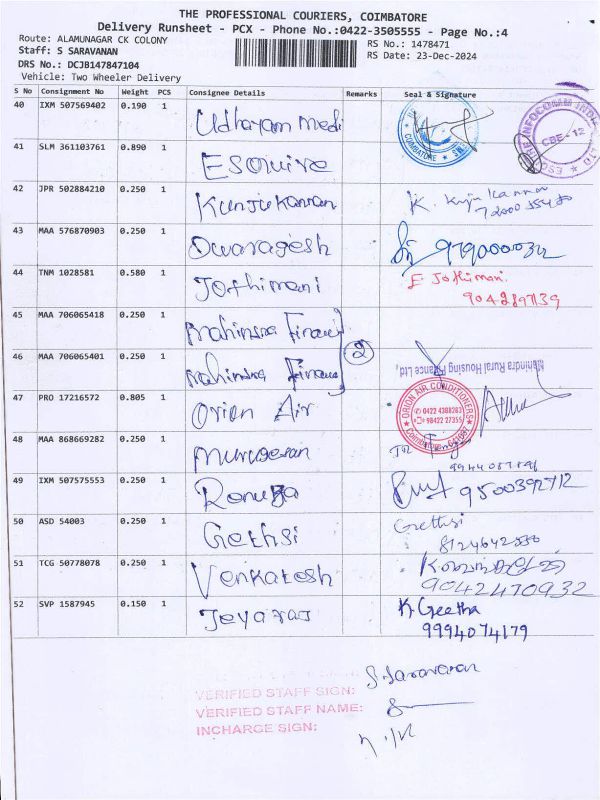 THE PROFESSIONAL COURIERS, COIMBATORE
Delivery Runsheet - PCX - Phone No.:0422-3505555 - Page No.:4
Route: ALAMUNAGAR CK COLONY
RS No.: 1478471
Staff: S SARAVANAN
RS Date: 23-Dec-2024
DRS No.: DCJB147847104
Vehicle: Two Wheeler Delivery
S No Consignment No Weight PCS Consignee Details Remarks Seal & Signature
40 IXM 507569402 0.190 1 Udhayam Medi
COIMBATORE
CBE - 12
41 SLM 361103761 0.890 1 ESquire
42 JPR 502884210 0.250 1 Kunjukannan K.
43 MAA 576870903 0.250 1 Dwaragesh
44 TNM 1028581 0.580 1 Jothimani E Jothimani.
45 MAA 706065418 0.250 1 Mahindra Finance
2
46 MAA 706065401 0.250 1 Mahindra Finance
Mahindra Rural Housing Finance Ltd,
47 PRO 17216572 0.805 1 Orion Air
ORION AIR CONDITIONERS
0422 4388283
98422 27355
48 MAA 868669282 0.250 1 Murugesan
49 IXM 507575553 0.250 1 Renuga 9500392712
50 ASD 54003 0.250 1 Gethsi Grethsi
51 TCG 50778078 0.250 1 Venkatesh
9042470932
52 SVP 1587945 0.150 1 Jeyaraj K. Geetha
9994074179
S.Saravanan
VERIFIED STAFF SIGN:
VERIFIED STAFF NAME:
INCHARGE SIGN: